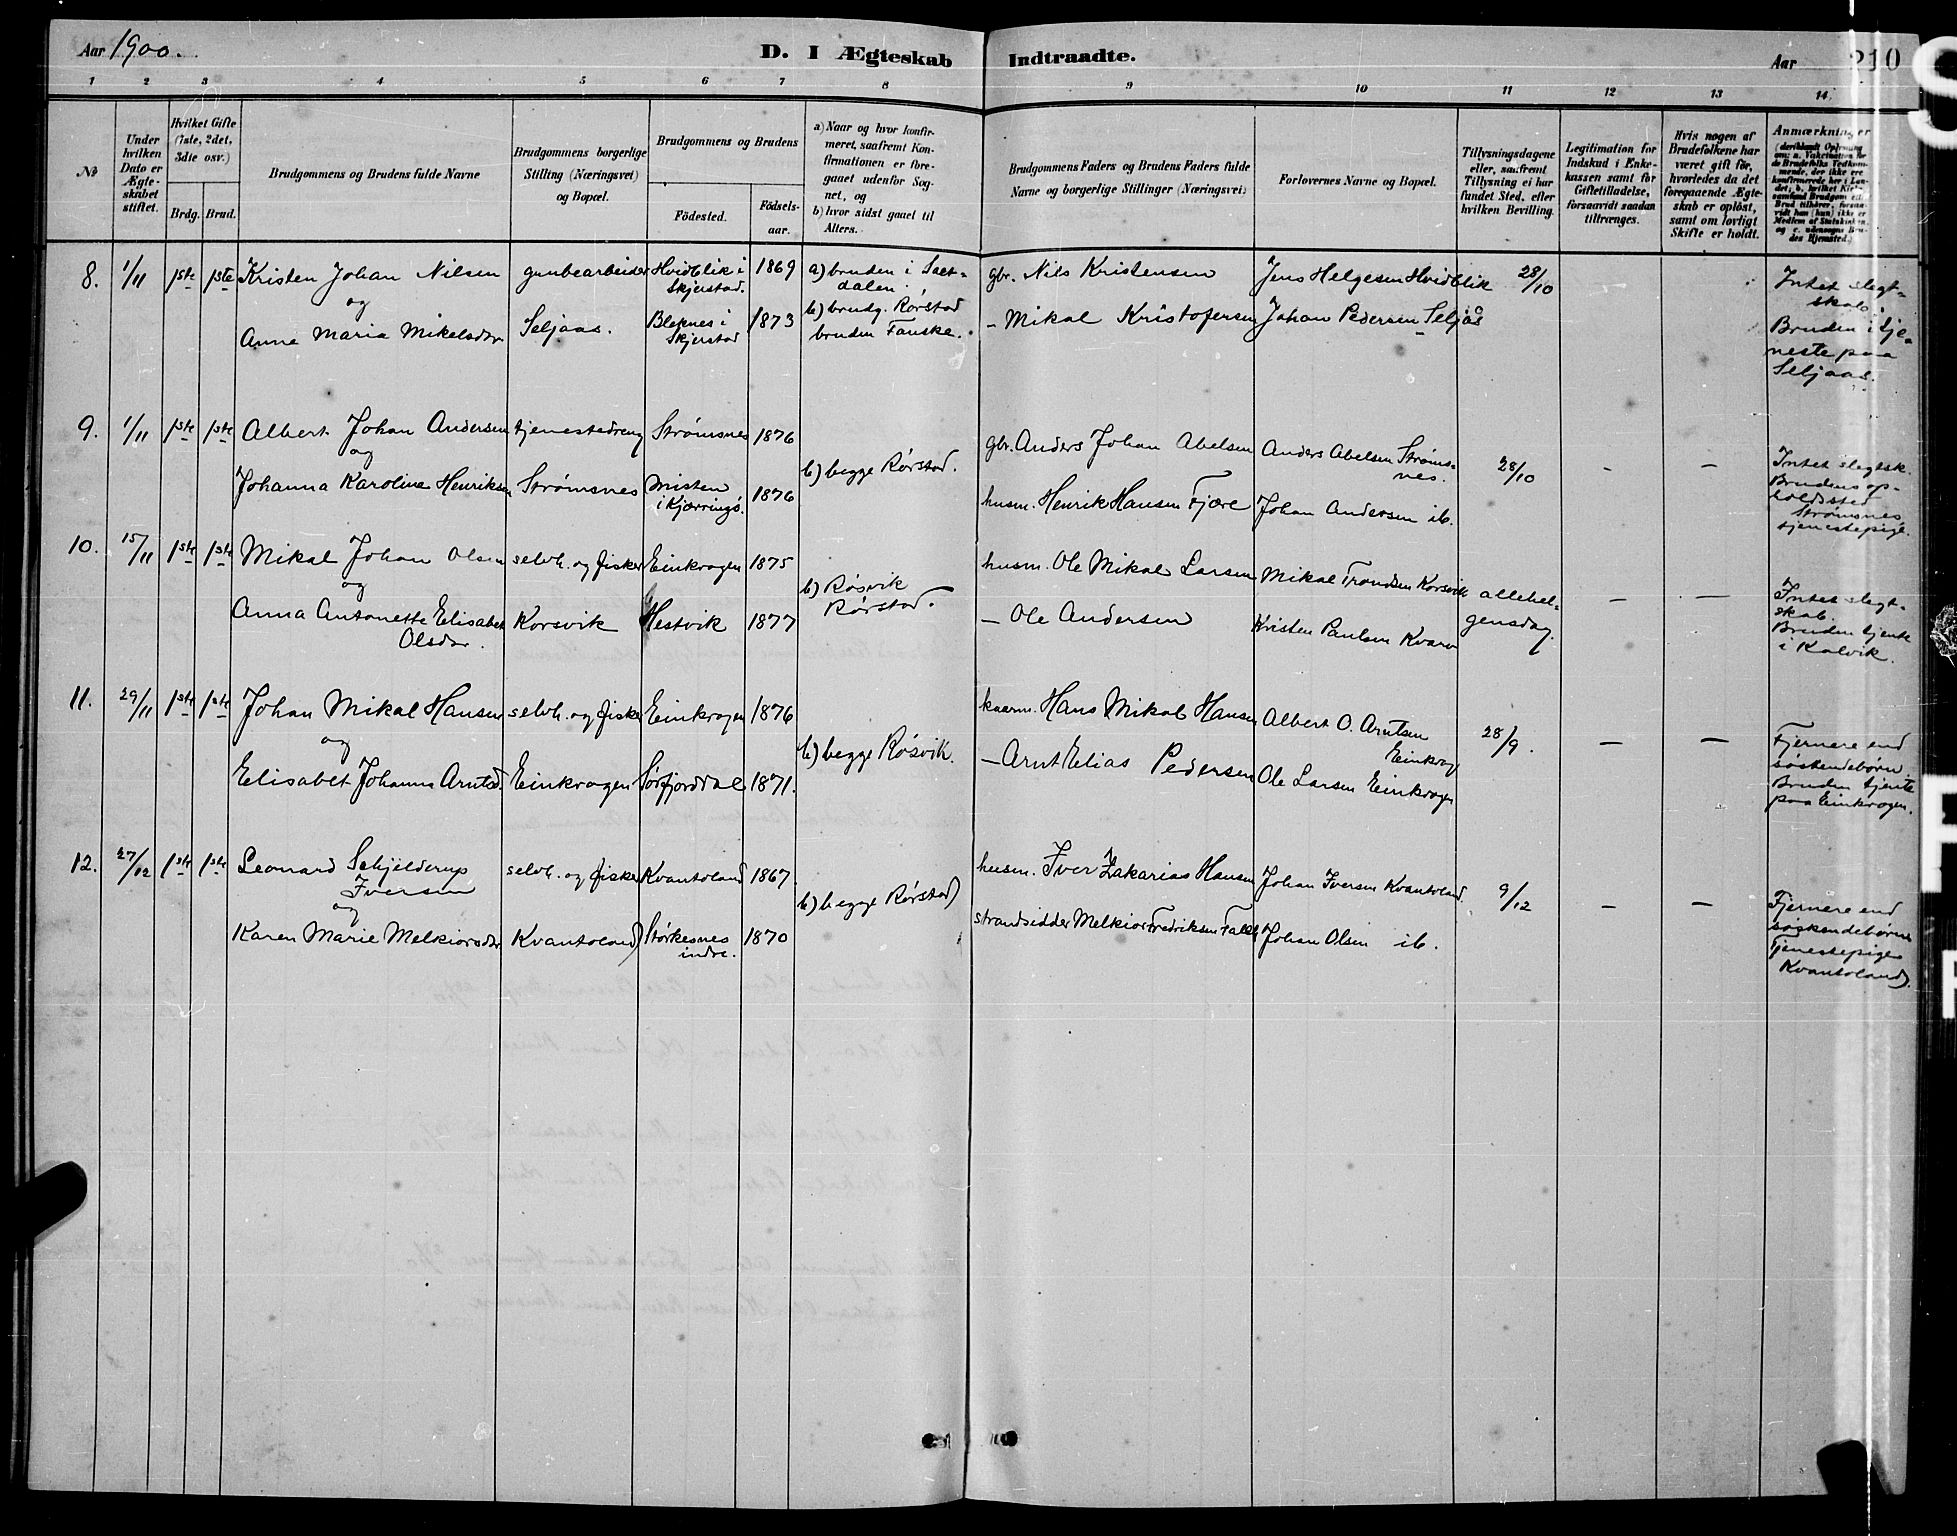 Aar 1900.
D. I Ægteskab Indtraadte.
Aar 210
1 2 3 4 5 6 7 8 9 10 11 12 13 14
No
Under hvilken Dato er Ægteskabet stiftet.
Hvilket Gifte (1ste, 2det, 3die osv.)
Brdg. Brud.
Brudgommens og Brudens fulde Navne
Brudgommens borgerlige Stilling (Næringsvei) og Bopæl.
Brudgommens og Brudens
Födested.
Födsels-aar.
a) Naar og hvor konfir-
meret, saafremt Kon-
firmationen er fore-
gaaet udenfor Sog-
net, og
b) hvor sidst gaaet til
Alters.
Brudgommens Faders og Brudens Faders fulde
Navne og borgerlige Stillinger (Næringsvei)
Forlovernes Navne og Bopæl.
Tillysningsdagene
eller, saafremt
Tillysning ei har
fundet Sted, efter
hvilken Bevilling.
Legitimation for
Indskud i Enke-
kassen samt for
Giftetilladelse,
forsaavidt saadan
tiltrænges.
Hvis nogen af
Brudefolkene har
været gift för,
hvorledes da det
foregaaende Ægte-
skab er oplöst,
samt om lovligt
Skifte er holdt.
Anmærkninger
8. 1/11 1ste 1ste Kristen Johan Nilsen
og
Anne Maria Mikelsdtr
grubearbeider
Seljaas.
Hvidblik i
Skjerstad. 1869
Bleknes i
Skjerstad 1873
a) bruden i Salt-
dalen.
b) brudg. Rørstad
bruden Fauske.
gbr. Nils Kristensen
– Mikal Kristofersen
Jens Helgesen Hvidblik
Johan Pedersen Seljås
28/10
Intet slegt-
skab.
Bruden i tje-
neste paa
Seljaas.
9. 1/11 1ste 1ste Albert Johan Andersen
og
Johanna Karoline Henriksen
tjenestedreng
Strømsnes
Strømsnes 1876
Misten
i Kjærringø. 1876
b) begge Rørstad.
gbr. Anders Johan Abelsen
husm. Henrik Hansen Fjære
Anders Abelsen Strøms-
nes.
Johan Andersen ib.
28/10 – –
Intet slegtsk.
Brudens op-
holdssted
Strømsnes
tjenestepige.
10. 15/11 1ste 1ste Mikal Johan Olsen
og
Anna Antonette Elisabet
Olsdtr.
selvh. og fisker
Korsvik
Einkrogen 1875
Hestvik 1877
b) Røsvik
Rørstad.
husm. Ole Mikal Larsen
– Ole Andersen
Mikal Trondsen Korsvik
Kristen Paulsen Kvarv
allehel-
gensdag. – –
Intet slegt-
skab.
Bruden tjente
i Kalvik.
11. 29/11 1ste 1ste Johan Mikal Hansen
og
Elisabet Johanna Arntsd.
selvh. og fisker
Einkrogen
Einkrogen 1876
Sørfjorddal 1871.
b) begge Røsvik.
kaarm. Hans Mikal Hansen
– Arnt Elias Pedersen
Albert O. Arntsen
Einkrog
Ole Larsen Einkrogen
28/9. – –
Fjernere end
søskendebørn.
Bruden tjente
paa Einkrogen.
12. 27/12 1ste 1ste Leonard Schjelderup
Iversen
og
Karen Marie Melkiorsdtr
selvh. og fisker
Kvantoland
Kvantoland 1867
Størkesnes
indre. 1870
b) begge Rørstad
husm. Iver Zakarias Hansen
strandsidder Melkior Fredriksen Falch
Johan Iversen Kvantoland.
Johan Olsen ib.
9/12 – –
Fjernere end
søskendebørn
Tjenestepige
Kvantoland.